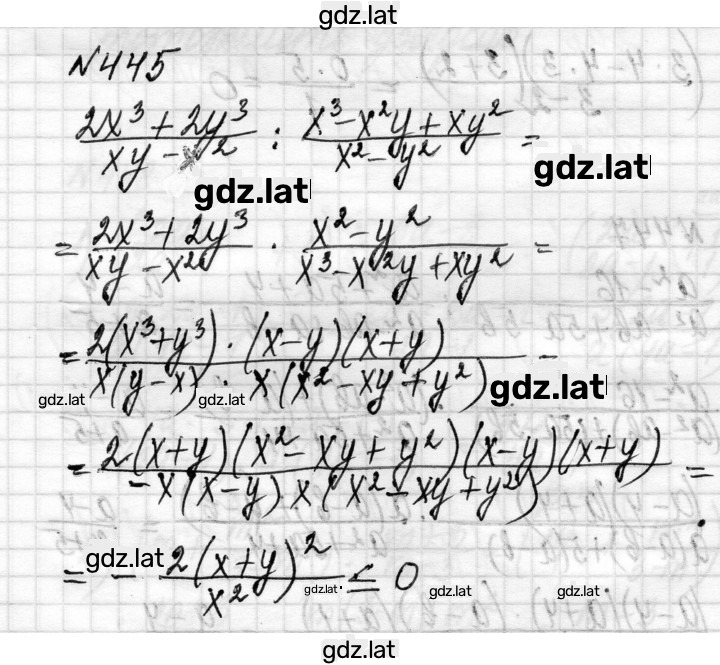 gdz.lat
N445
(2x³ + 2y³)/(xy - x²) : (x³ - x²y + xy²)/(x² - y²) =
gdz.lat
gdz.lat
= (2x³ + 2y³)/(xy - x²) · (x² - y²)/(x³ - x²y + xy²) =
= (2(x³ + y³) · (x - y)(x + y))/(x(y - x) · x(x² - xy + y²)) =
gdz.lat
gdz.lat
gdz.lat
= (2(x + y)(x² - xy + y²)(x - y)(x + y))/(-x(x - y) x(x² - xy + y²)) =
gdz.lat
= - (2(x + y)²)/(x²) ≤ 0
gdz.lat
gdz.lat
gdz.lat
gdz.lat